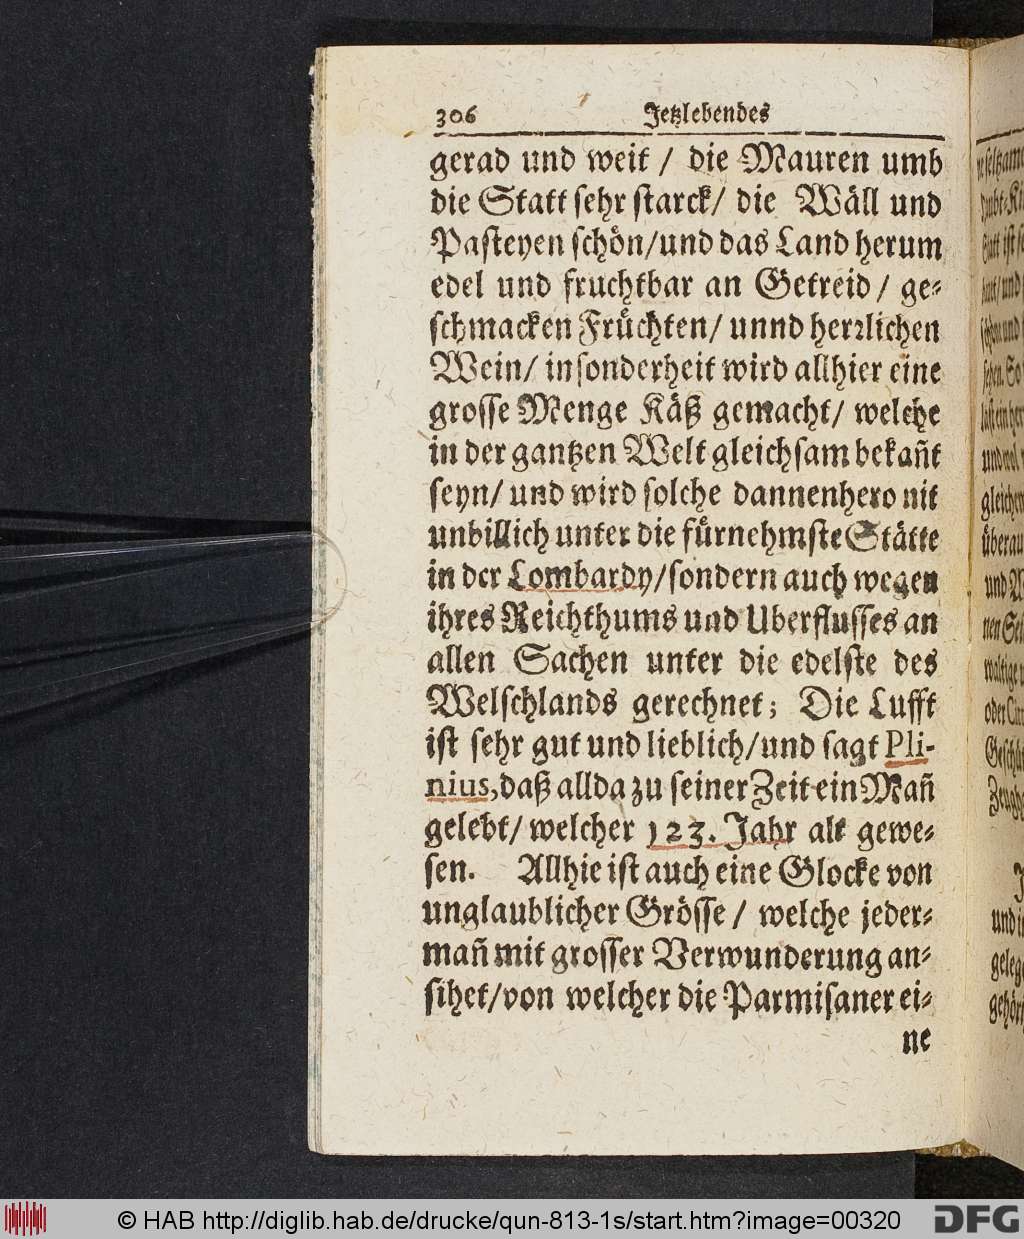 306 Jetzlebendes
gerad und weit / die Mauren umb
die Statt sehr starck/ die Wäll und
Pasteyen schön/und das Land herum
edel und fruchtbar an Getreid / ge-
schmacken Früchten/ unnd herrlichen
Wein/ insonderheit wird allhier eine
grosse Menge Käß gemacht/ welche
in der gantzen Welt gleichsam bekañt
seyn/ und wird solche dannenhero nit
unbillich unter die fürnehmste Stätte
in der Lombardy/sondern auch wegen
ihres Reichthums und Uberflusses an
allen Sachen unter die edelste des
Welschlands gerechnet; Die Lufft
ist sehr gut und lieblich/und sagt Pli-
nius,daß allda zu seiner Zeit ein Mañ
gelebt/ welcher 123. Jahr alt gewe-
sen. Allhie ist auch eine Glocke von
unglaublicher Grösse / welche jeder-
mañ mit grosser Verwunderung an-
sihet/von welcher die Parmisaner ei-
ne
© HAB http://diglib.hab.de/drucke/qun-813-1s/start.htm?image=00320
DFG